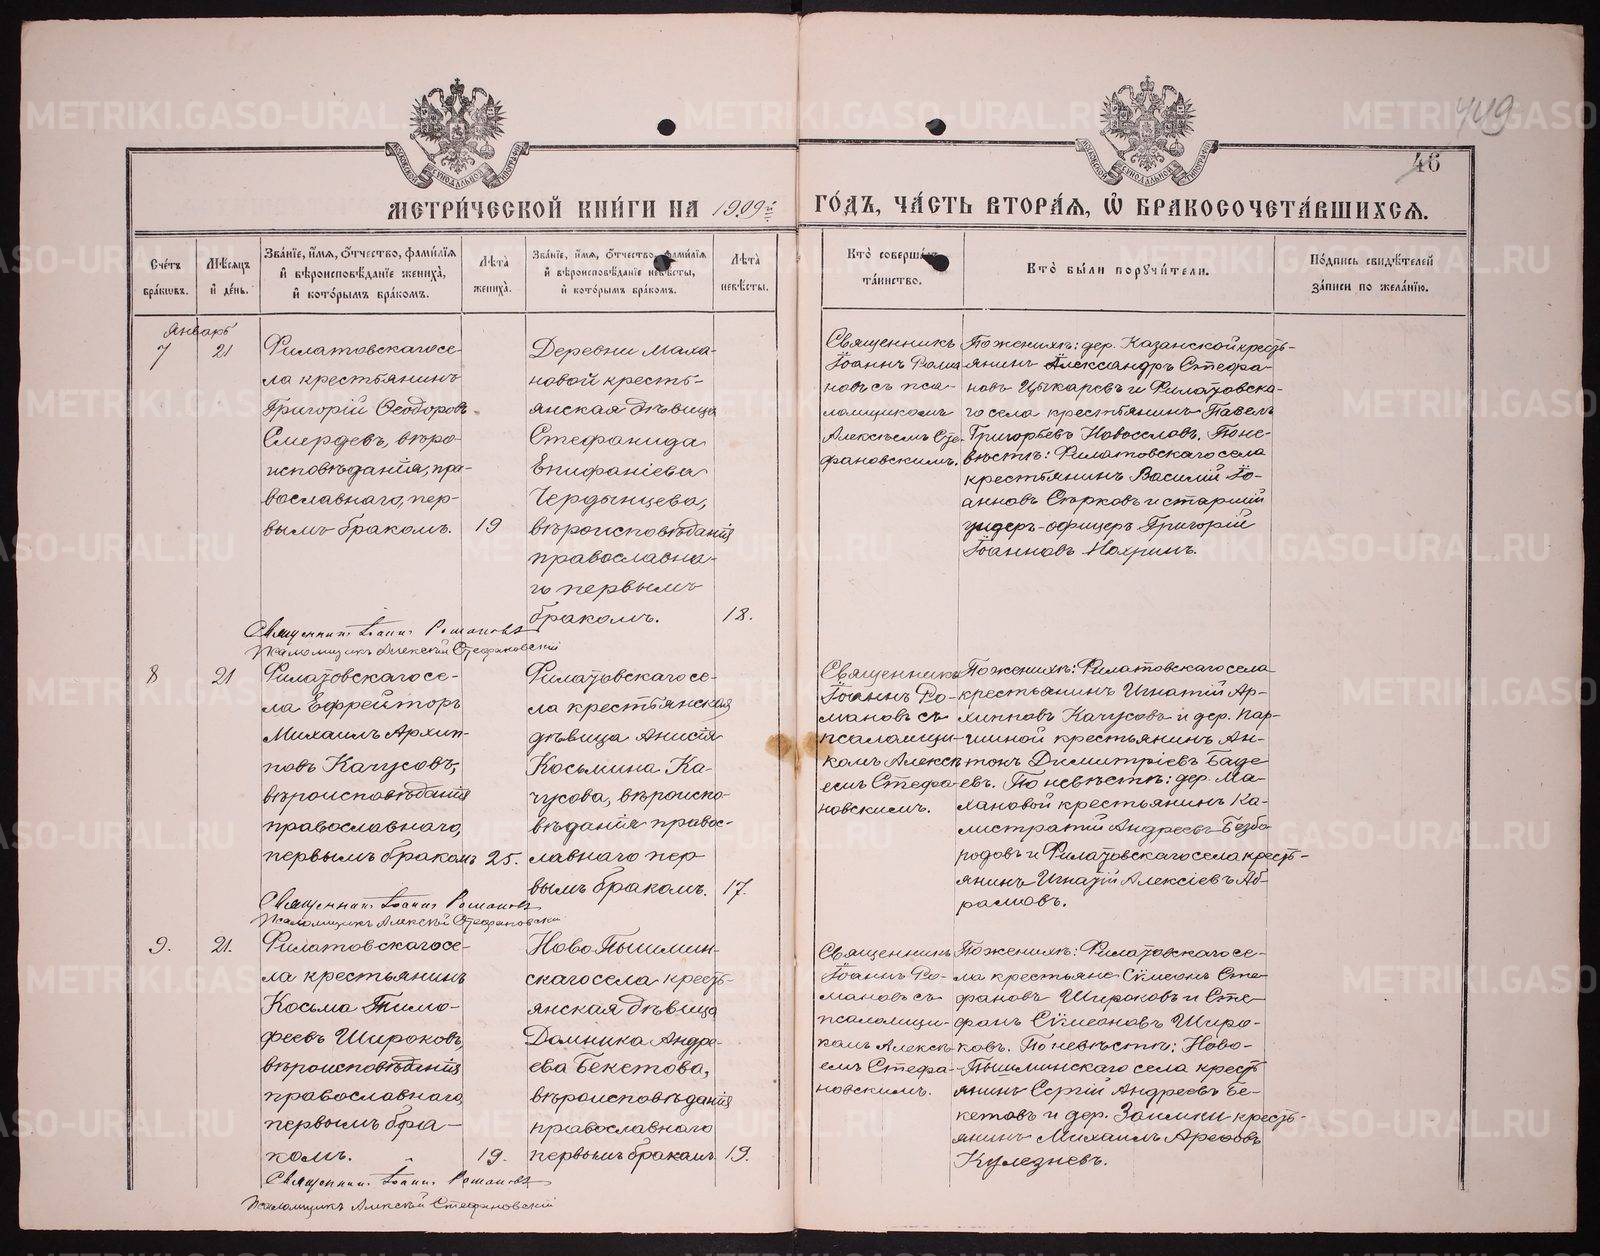 449
46
МЕТРИ́ЧЕСКОЙ КНИ́ГИ НА 1909й
ГО́ДЪ, ЧА́СТЬ ВТОРА́Я, Ѽ БРАКОСОЧЕТА́ВШИХСЯ.
Сче́тъ
бра́ковъ.
Мѣ́сяцъ
и҆ де́нь.
Зва́нїе, и҆́мя, ѻ҆́тчество, фами́лїя
и҆ вѣроисповѣ́данїе жениха̀,
и҆ кото́рымъ бра́комъ.
Лѣта̀
жениха̀.
Зва́нїе, и҆́мя, ѻ҆́тчество, фами́лїя
и҆ вѣроисповѣ́данїе невѣ́сты,
и҆ кото́рымъ бра́комъ.
Лѣта̀
невѣ́сты.
Кто̀ соверша́лъ
та́инство.
Кто̀ бы́ли порꙋчи́тели.
По́дпись свидѣ́телей
за́писи по жела́нїю.
Январь
7
21
Филатовскаго се-
ла крестьянинъ
Григорій Ѳеодоровъ
Смердевъ, вѣро-
исповѣданія, пра-
вославнаго, пер-
вымъ бракомъ.
19
Деревни Мала-
новой кресть-
янская дѣвица
Стефанида
Епифаніева
Чердынцева,
вѣроисповѣданія
православна-
го первымъ
бракомъ.
18.
Священникъ
Іоаннъ Рома
новъ съ пса-
ломщикомъ
Алексѣемъ Сте-
фановскимъ.
По женихѣ: дер. Казанской кресть-
янинъ Александръ Стефа-
новъ Цыкаревъ и Филатовска-
го села крестьянинъ Павелъ
Григорьевъ Новоселовъ. По не-
вѣстѣ: Филатовскаго села
крестьянинъ Василій Іо-
анновъ Сѣрковъ и старшій
ундеръ-офицеръ Григорій
Іоанновъ Нохринъ.
Священникъ Іоаннъ Романовъ
Псаломщикъ Алексѣй Стефановскій
8
21
Филатовскаго се-
ла Ефрейторъ
Михаилъ Архип-
повъ Качусовъ,
вѣроисповѣданія
православнаго,
первымъ бракомъ
25.
Филатовскаго се-
ла крестьянская
дѣвица Анисія
Косьмина Ка-
чусова, вѣроиспо-
вѣданія правос-
лавнаго пер
вымъ бракомъ.
17.
Священникъ
Іоаннъ Ро-
мановъ съ
псаломщи-
комъ Алексѣ
емъ Стефа-
новскимъ.
По женихѣ: Филатовскаго села
крестьянинъ Игнатій Ар-
хипповъ Качусовъ и дер. Пар-
шиной крестьянинъ Ан-
тонъ Димитріевъ Баде
евъ. По невѣстѣ: дер. Ма-
лановой крестьянинъ Ка-
листратій Андреевъ Безбо
родовъ и Филатовскаго села кресть-
янинъ Игнатій Алексіевъ Аб-
рамовъ.
Священникъ Іоаннъ Романовъ
Псаломщикъ Алексѣй Стефановскій
9.
21.
Филатовскаго се-
ла крестьянинъ
Косьма Тимо-
феевъ Широковъ,
вѣроисповѣданія
православнаго,
первымъ бра-
комъ.
19.
Ново Пышмин-
скаго села кресть-
янская дѣвица
Домника Андре-
ева Бекетова,
вѣроисповѣданія
православнаго
первымъ бракомъ
19.
Священникъ
Іоаннъ Ро-
мановъ съ
псаломщи-
комъ Алексѣ
емъ Стефа-
новскимъ.
По женихѣ: Филатовскаго се-
ла крестьяне Сѵмеонъ Сте
фановъ Широковъ и Сте
фанъ Сѵмеоновъ Широ-
ковъ. По невѣстѣ: Ново-
Пышминскаго села кресть
янинъ Сергій Андреевъ Бе-
кетовъ и дер. Заимки кресть-
янинъ Михаилъ Арефовъ
Кулезневъ.
Священникъ Іоаннъ Романовъ
Псаломщикъ Алексѣй Стефановскій
METRIKI.GASO-URAL.RU